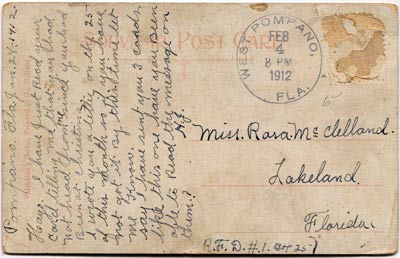 Pompano, Fla, Jan. 24-1912
I have just Read your
Card telling me that you had
not head from me since you had
Ben at christmas.
I wrote you a letter on the 25-
of this month as you have
not got it By this time let
me know.
say I have sent you 3 cards
like this one have you Ben
able to Read the message on
them?
POST CARD
WEST POMPANO,
FEB
4
8 PM
1912
FLA.
Miss. Rosa. McClelland.
Lakeland.
Florida
R.F.D. #1. BX 25